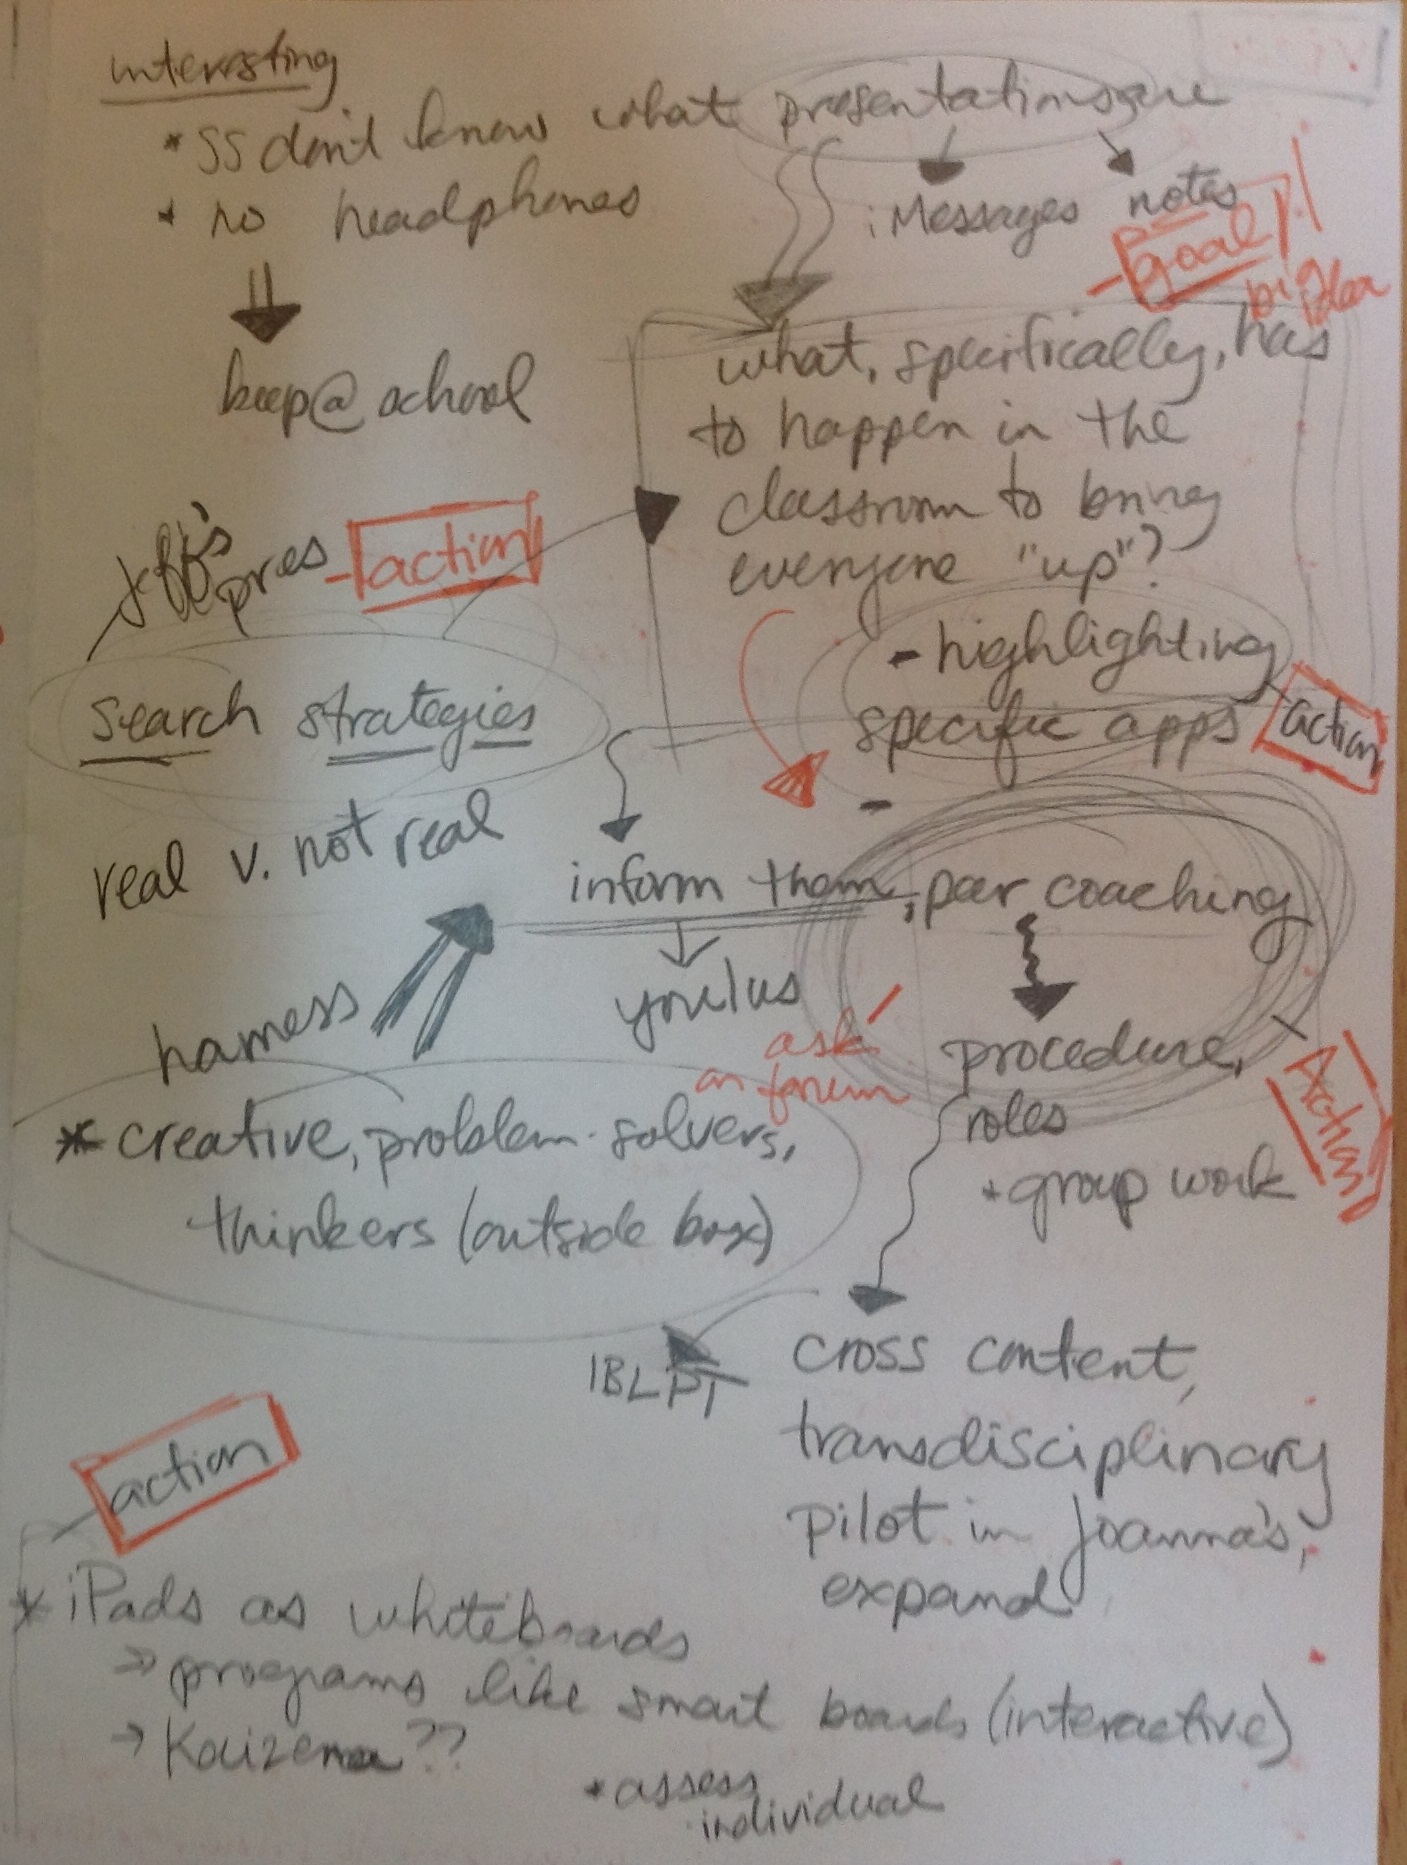 interesting
* SS don't know what presentations are
* no headphones
iMessages notes
- goal
big idea
keep @ school
what, specifically, has
to happen in the
classroom to bring
everyone "up"?
Jeff's
pres - action
- highlighting
specific apps
action
search strategies
-
real v. not real
inform them, peer coaching
you/us
harness
ask
on forum
procedure,
roles
Action
* group work
* creative, problem-solvers,
thinkers (outside box)
IBL PT
cross content,
transdisciplinary
pilot in Joanna's,
expand
action
* iPads as whiteboards
→ programs like smart boards (interactive)
→ Kaizena??
* assess
individual